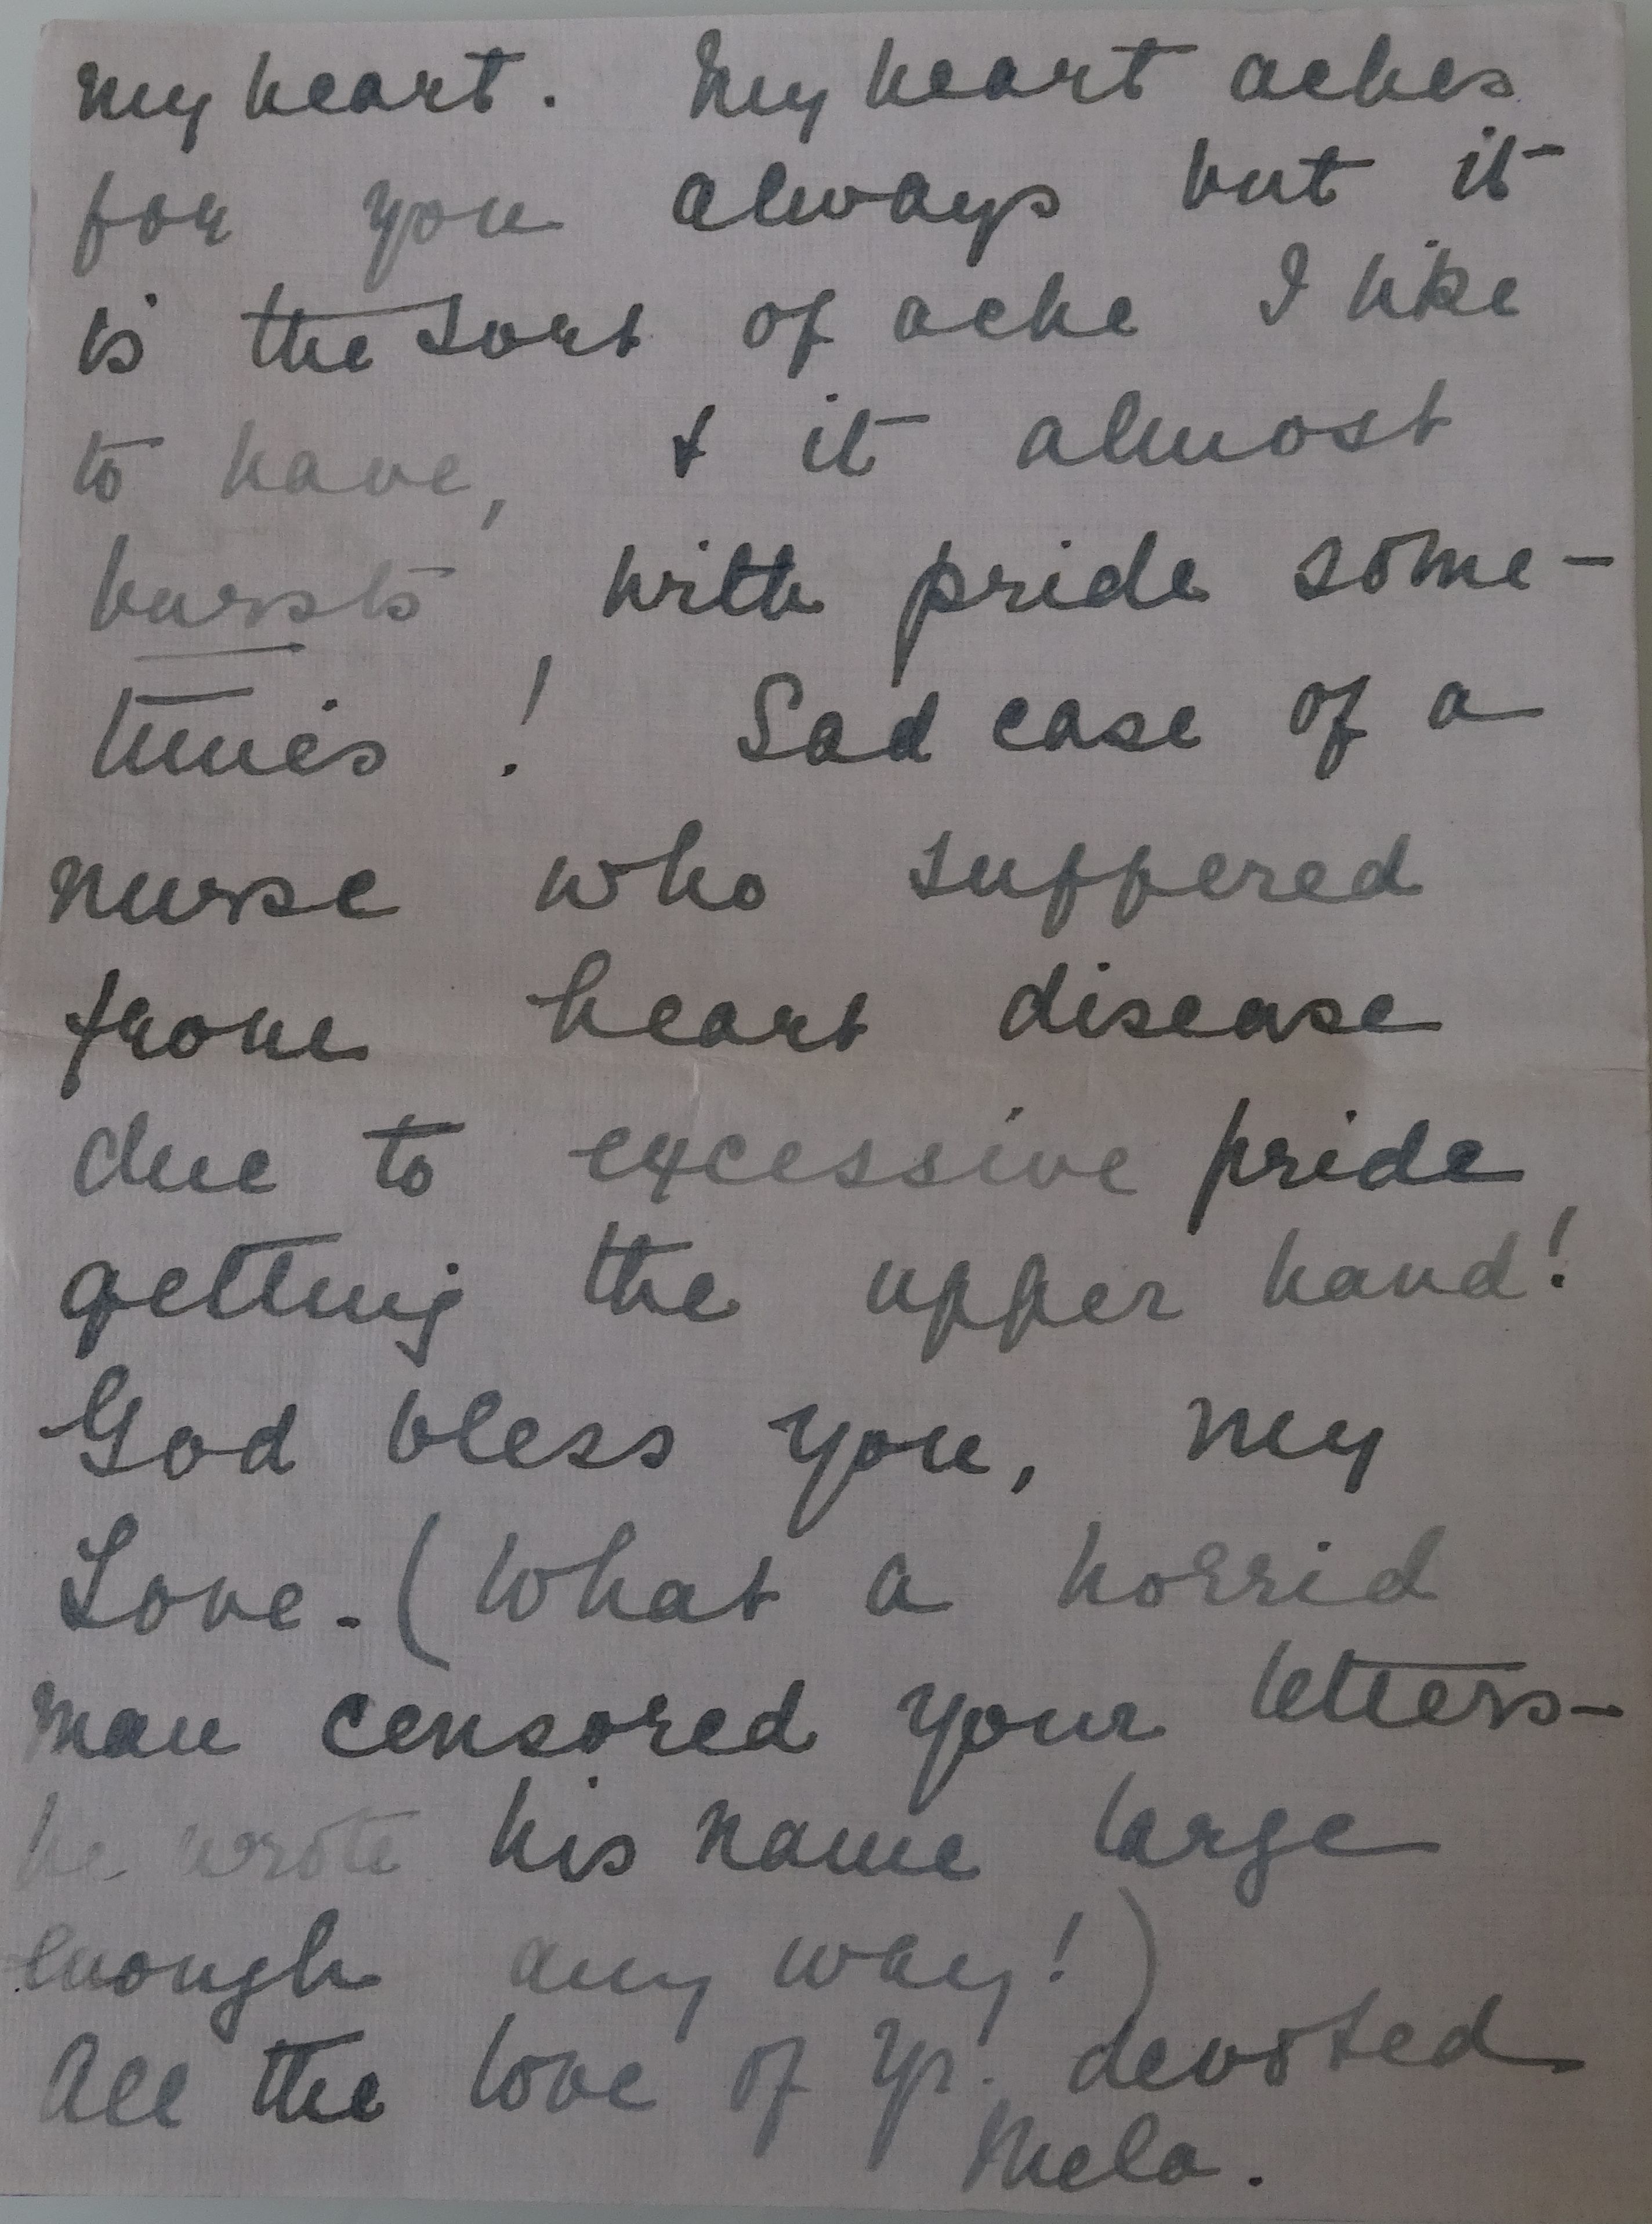 my heart. My heart aches
for you always but it
is the sort of ache I like
to have, & it almost
bursts with pride some-
times! Sad case of a
nurse who suffered
from heart disease
due to excessive pride
getting the upper hand!
God bless you, my
Love. (What a horrid
man censored your letters -
he wrote his name large
enough any way!)
All the love of yr. devoted
Mela.